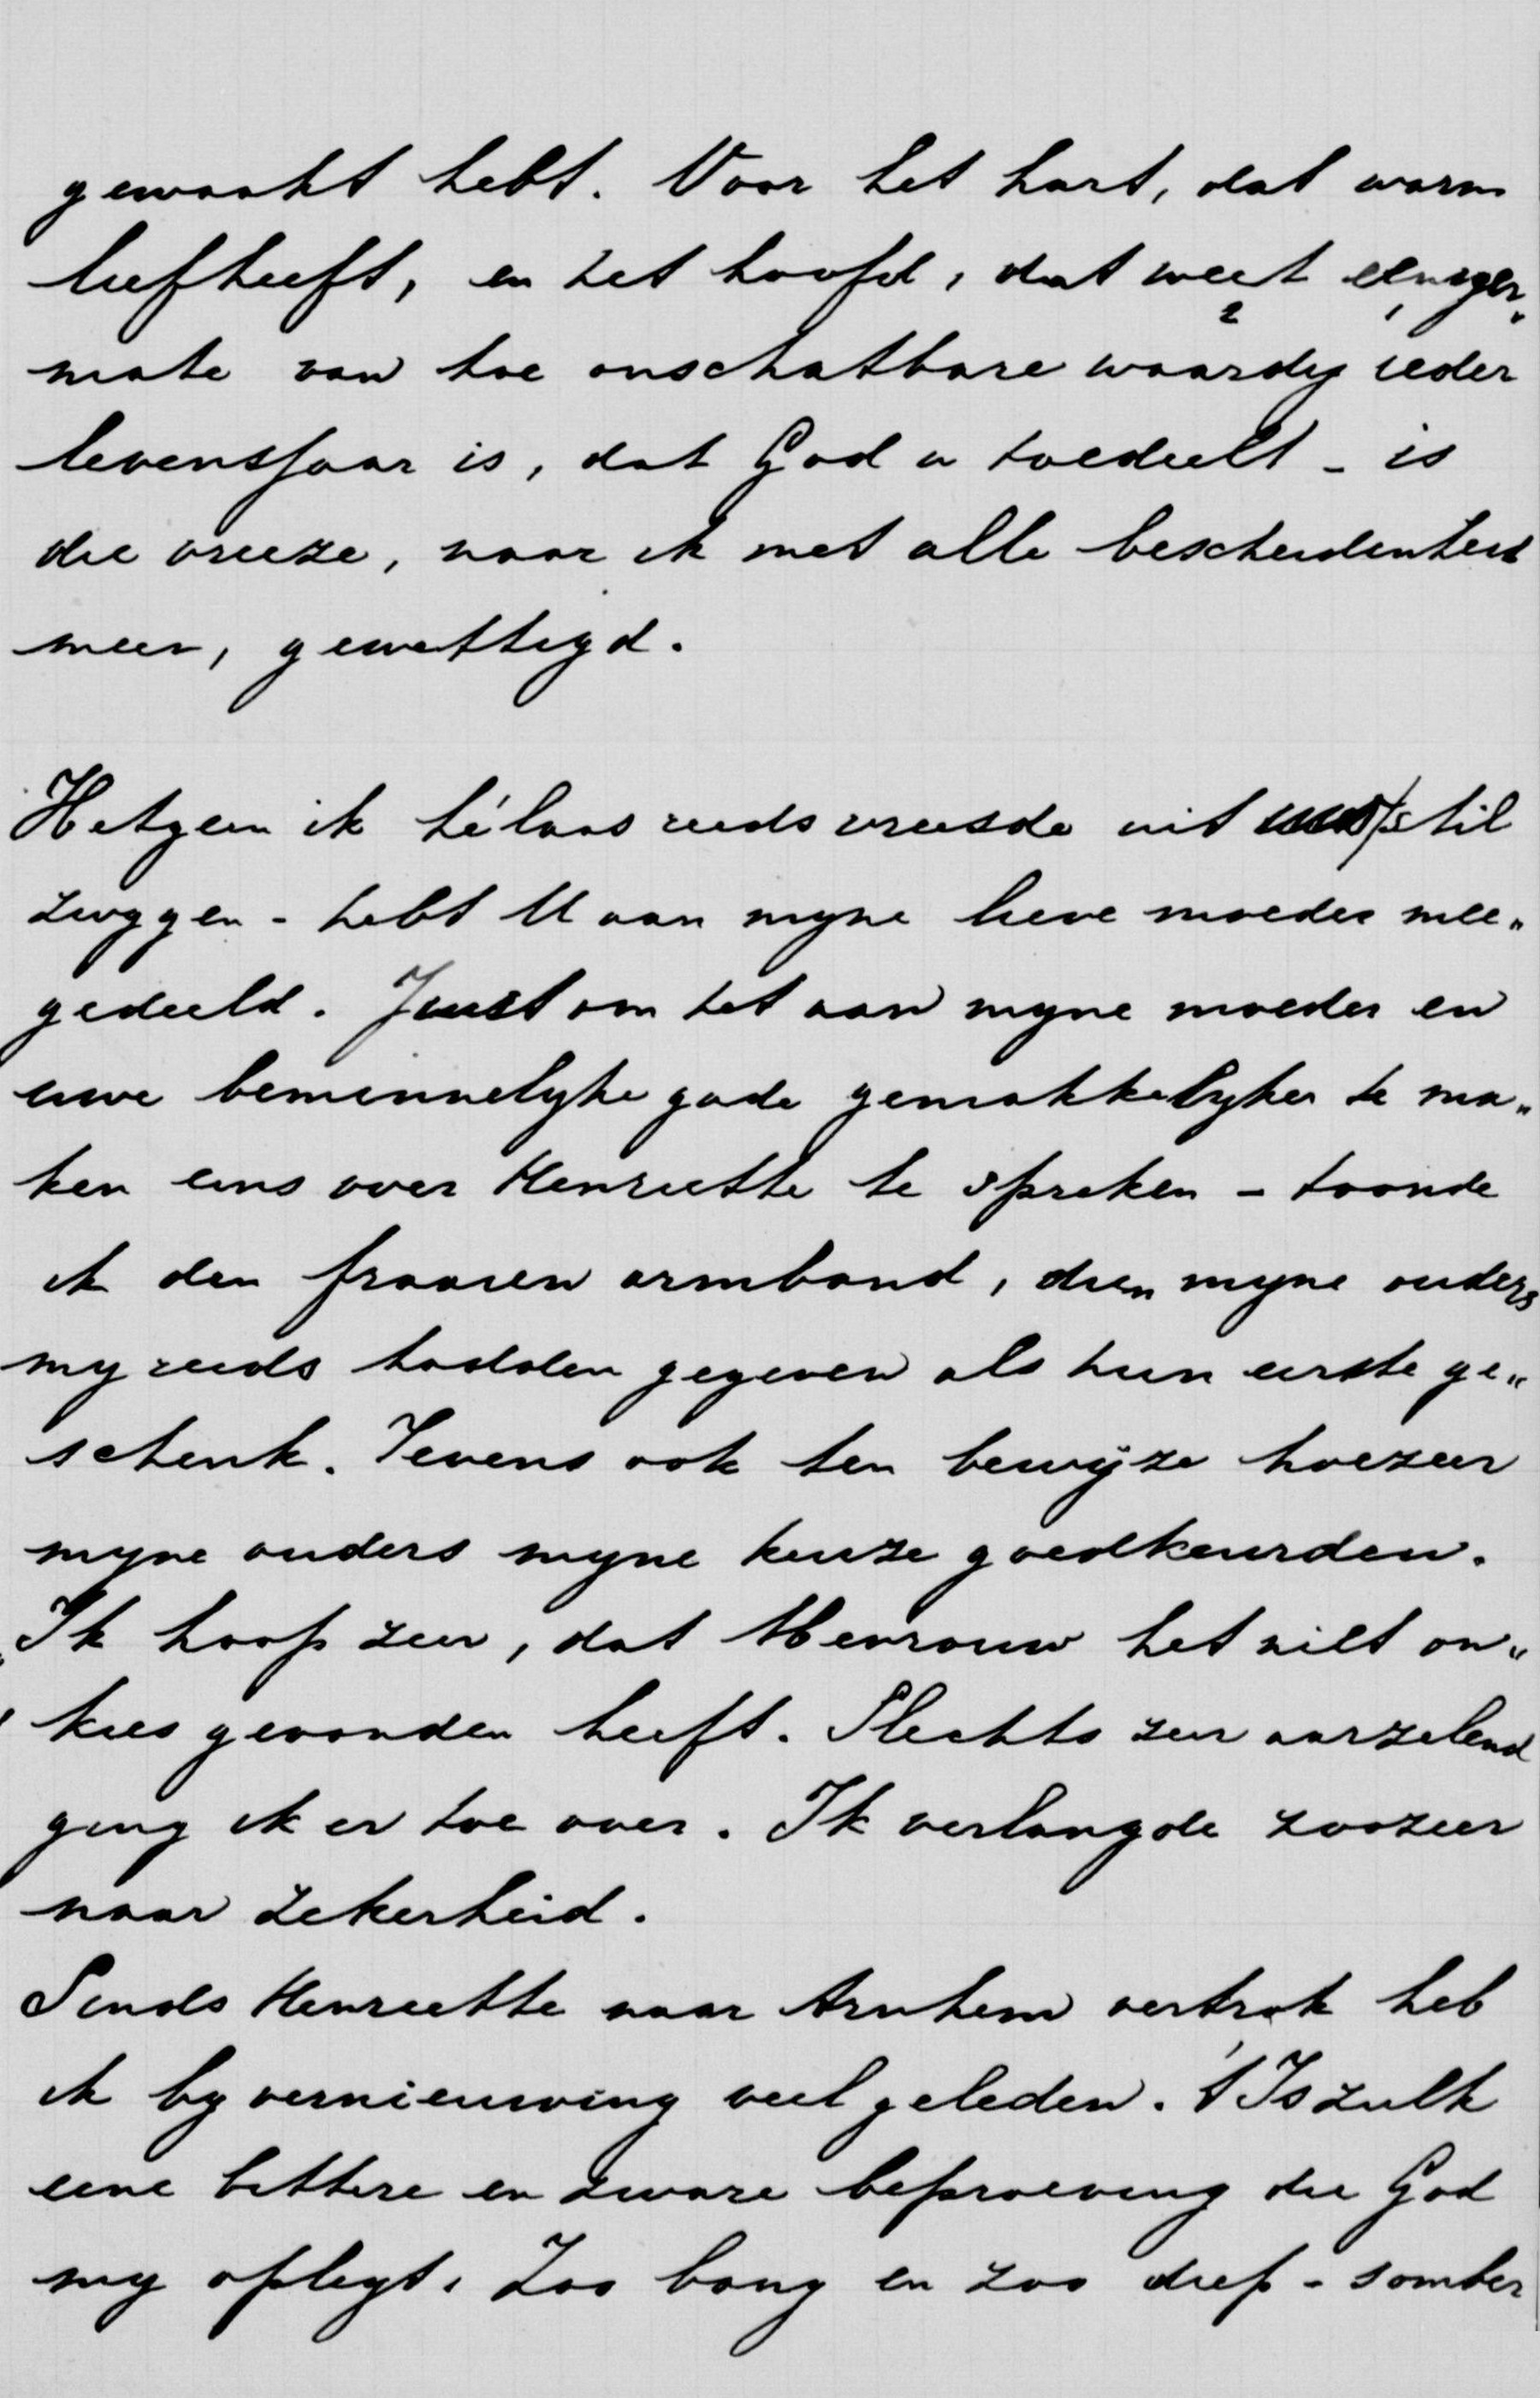 gewaakt hebt. Voor het hart, dat warm
liefheeft, en het hoofd, dat weet eeniger„
mate van hoe onschatbare waardij ieder
levensjaar is, dat God u toedeelt - is
die vreeze, naar ik met alle bescheidenheid
meen, gewettigd.
Hetgeen ik hélaas reeds vreesde uit stil
zwygen - hebt U aan myne lieve moeder mee„
gedeeld. Juist om het aan myne moeder en
uwe beminnelyke gade gemakkelyker te ma„
ken eens over Henriette te spreken - toonde
ik den fraaien armband, dien myne ouders
my reeds hadden gegeven als hun eerste ge„
schenk. Tevens ook ten bewijze hoezeer
myne ouders myne keuze goedkeurden.
Ik hoop zeer, dat Mevrouw het niet on„
„kies gevonden heeft. Slechts zeer aarzelend
ging ik er toe over. Ik verlangde zoozeer
naar zekerheid.
Sinds Henriette naar Arnhem vertrok heb
ik by vernieuwing veel geleden. 't Is zulk
eene bittere en zware beproeving die God
my oplegt. Zoo bang en zoo diep - somber